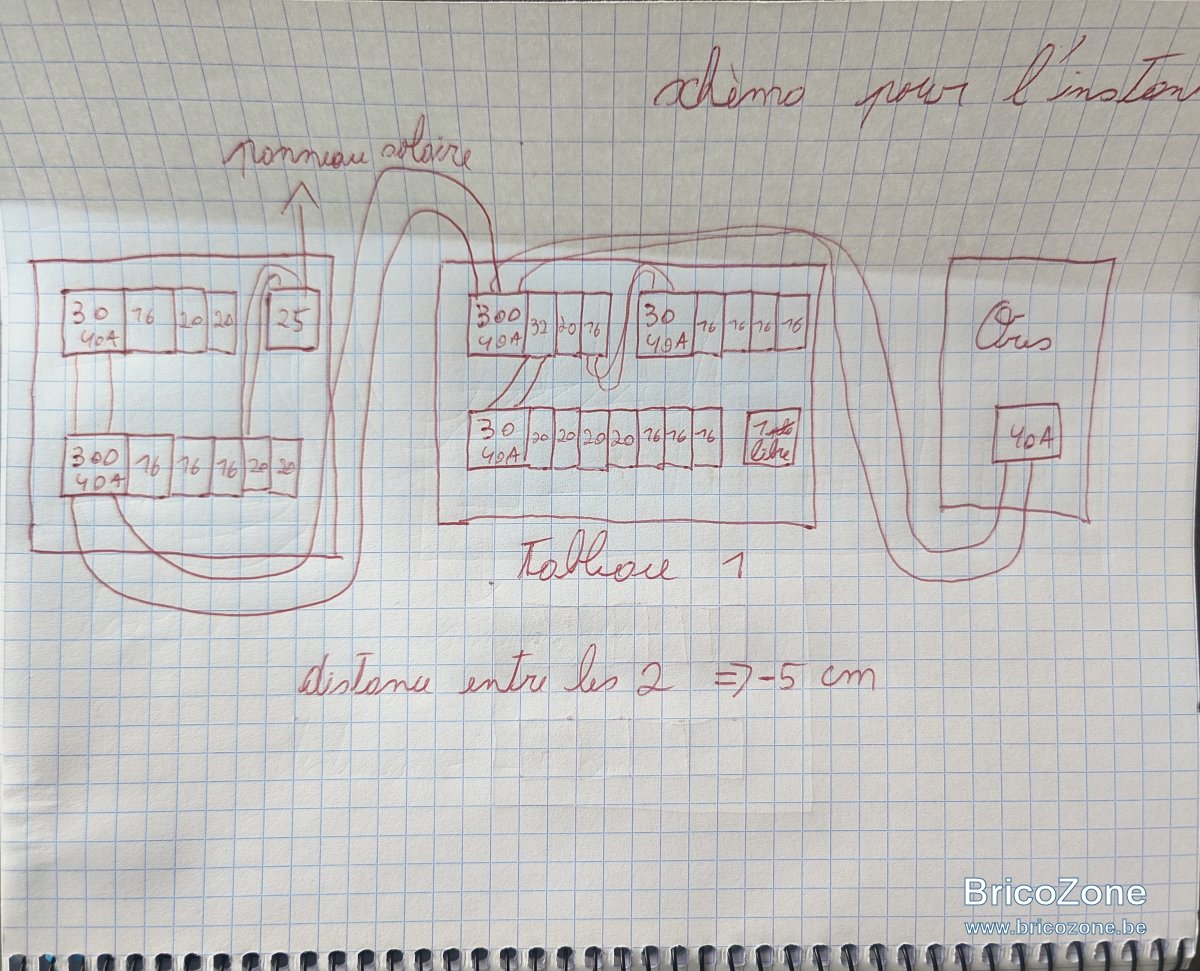 schèma pour l'instan
panneau solaire
30 40A 16 20 20 25
300 40A 16 16 16 20 20
300 40A 32 20 16 30 40A 16 16 16 16
30 40A 20 20 20 20 16 16 16 libre
Ores
40A
Tableau 1
distance entre les 2 => -5 cm
BricoZone
www.bricozone.be